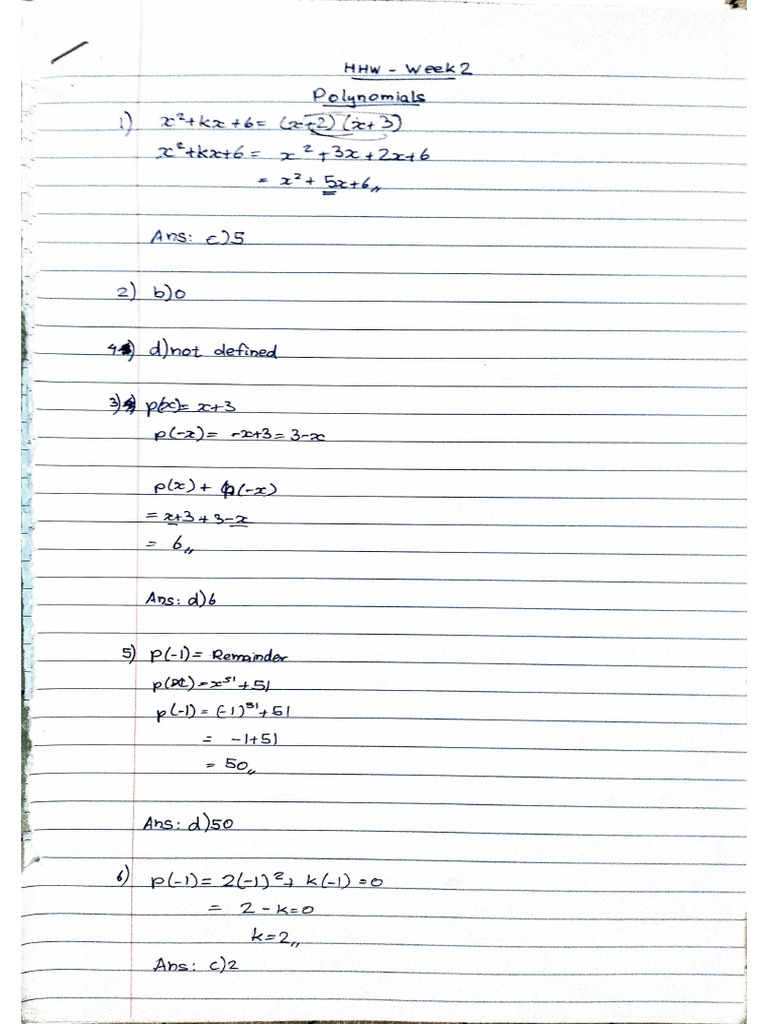 HHW - Week 2
Polynomials
1) x²+kx+6 = (x+2) (x+3)
x²+kx+6 = x²+3x+2x+6
= x²+5x+6,,
Ans: c)5
2) b)0
4) d)not defined
3) p(x)= x+3
p(-x)= -x+3=3-x
p(x)+ p(-x)
= x+3+3-x
= 6,,
Ans: d)6
5) P(-1)= Remainder
p(x)=x⁵¹+51
p(-1)= (-1)⁵¹+51
= -1+51
= 50,,
Ans: d)50
6) p(-1)= 2(-1)²+ k(-1)=0
= 2-k=0
k=2,,
Ans: c)2